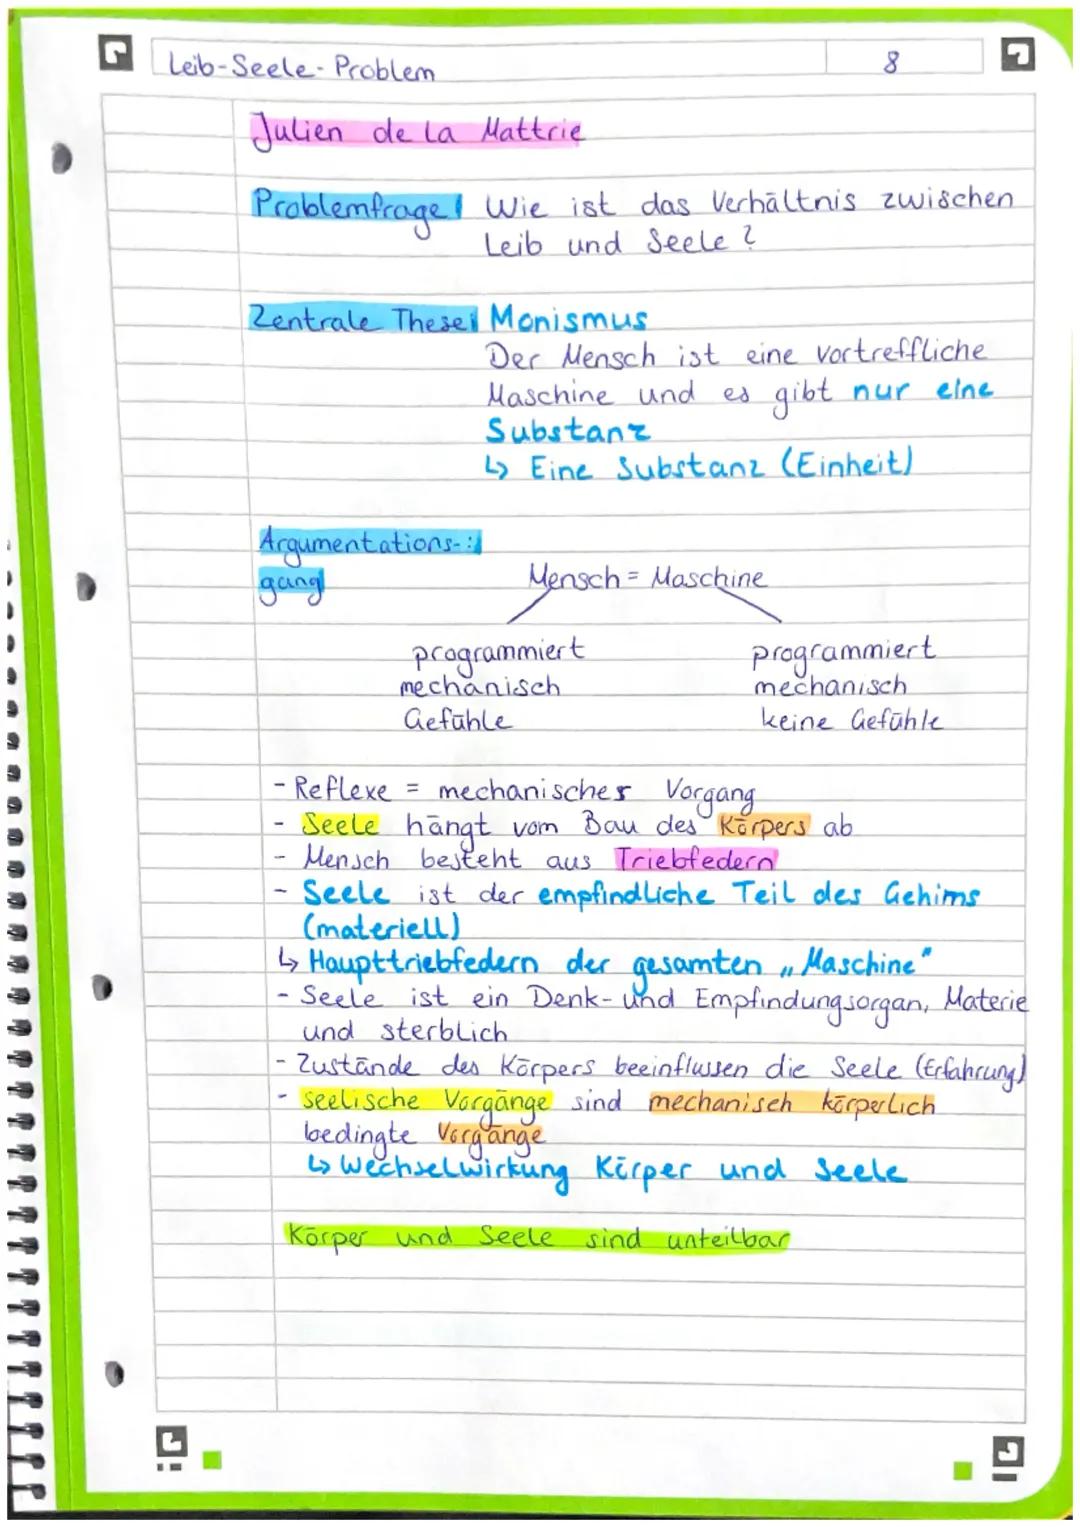 Leib-Seele-Problem 8
Julien de la Mattrie
Problemfrage: Wie ist das Verhältnis zwischen
Leib und Seele?
Zentrale These: Monismus
Der Mensch ist eine vortreffliche
Maschine und es gibt nur eine
Substanz
↳ Eine Substanz (Einheit)
Argumentations-:
gang
Mensch = Maschine
programmiert programmiert
mechanisch mechanisch
Gefühle keine Gefühle
- Reflexe = mechanischer Vorgang
- Seele hängt vom Bau des Körpers ab
- Mensch besteht aus Triebfedern
- Seele ist der empfindliche Teil des Gehirns
(materiell)
↳ Haupttriebfedern der gesamten „Maschine"
- Seele ist ein Denk- und Empfindungsorgan, Materie
und sterblich
- Zustände des Körpers beeinflussen die Seele (Erfahrung)
- seelische Vorgänge sind mechanisch körperlich
bedingte Vorgänge
↳ Wechselwirkung Körper und Seele
Körper und Seele sind unteilbar